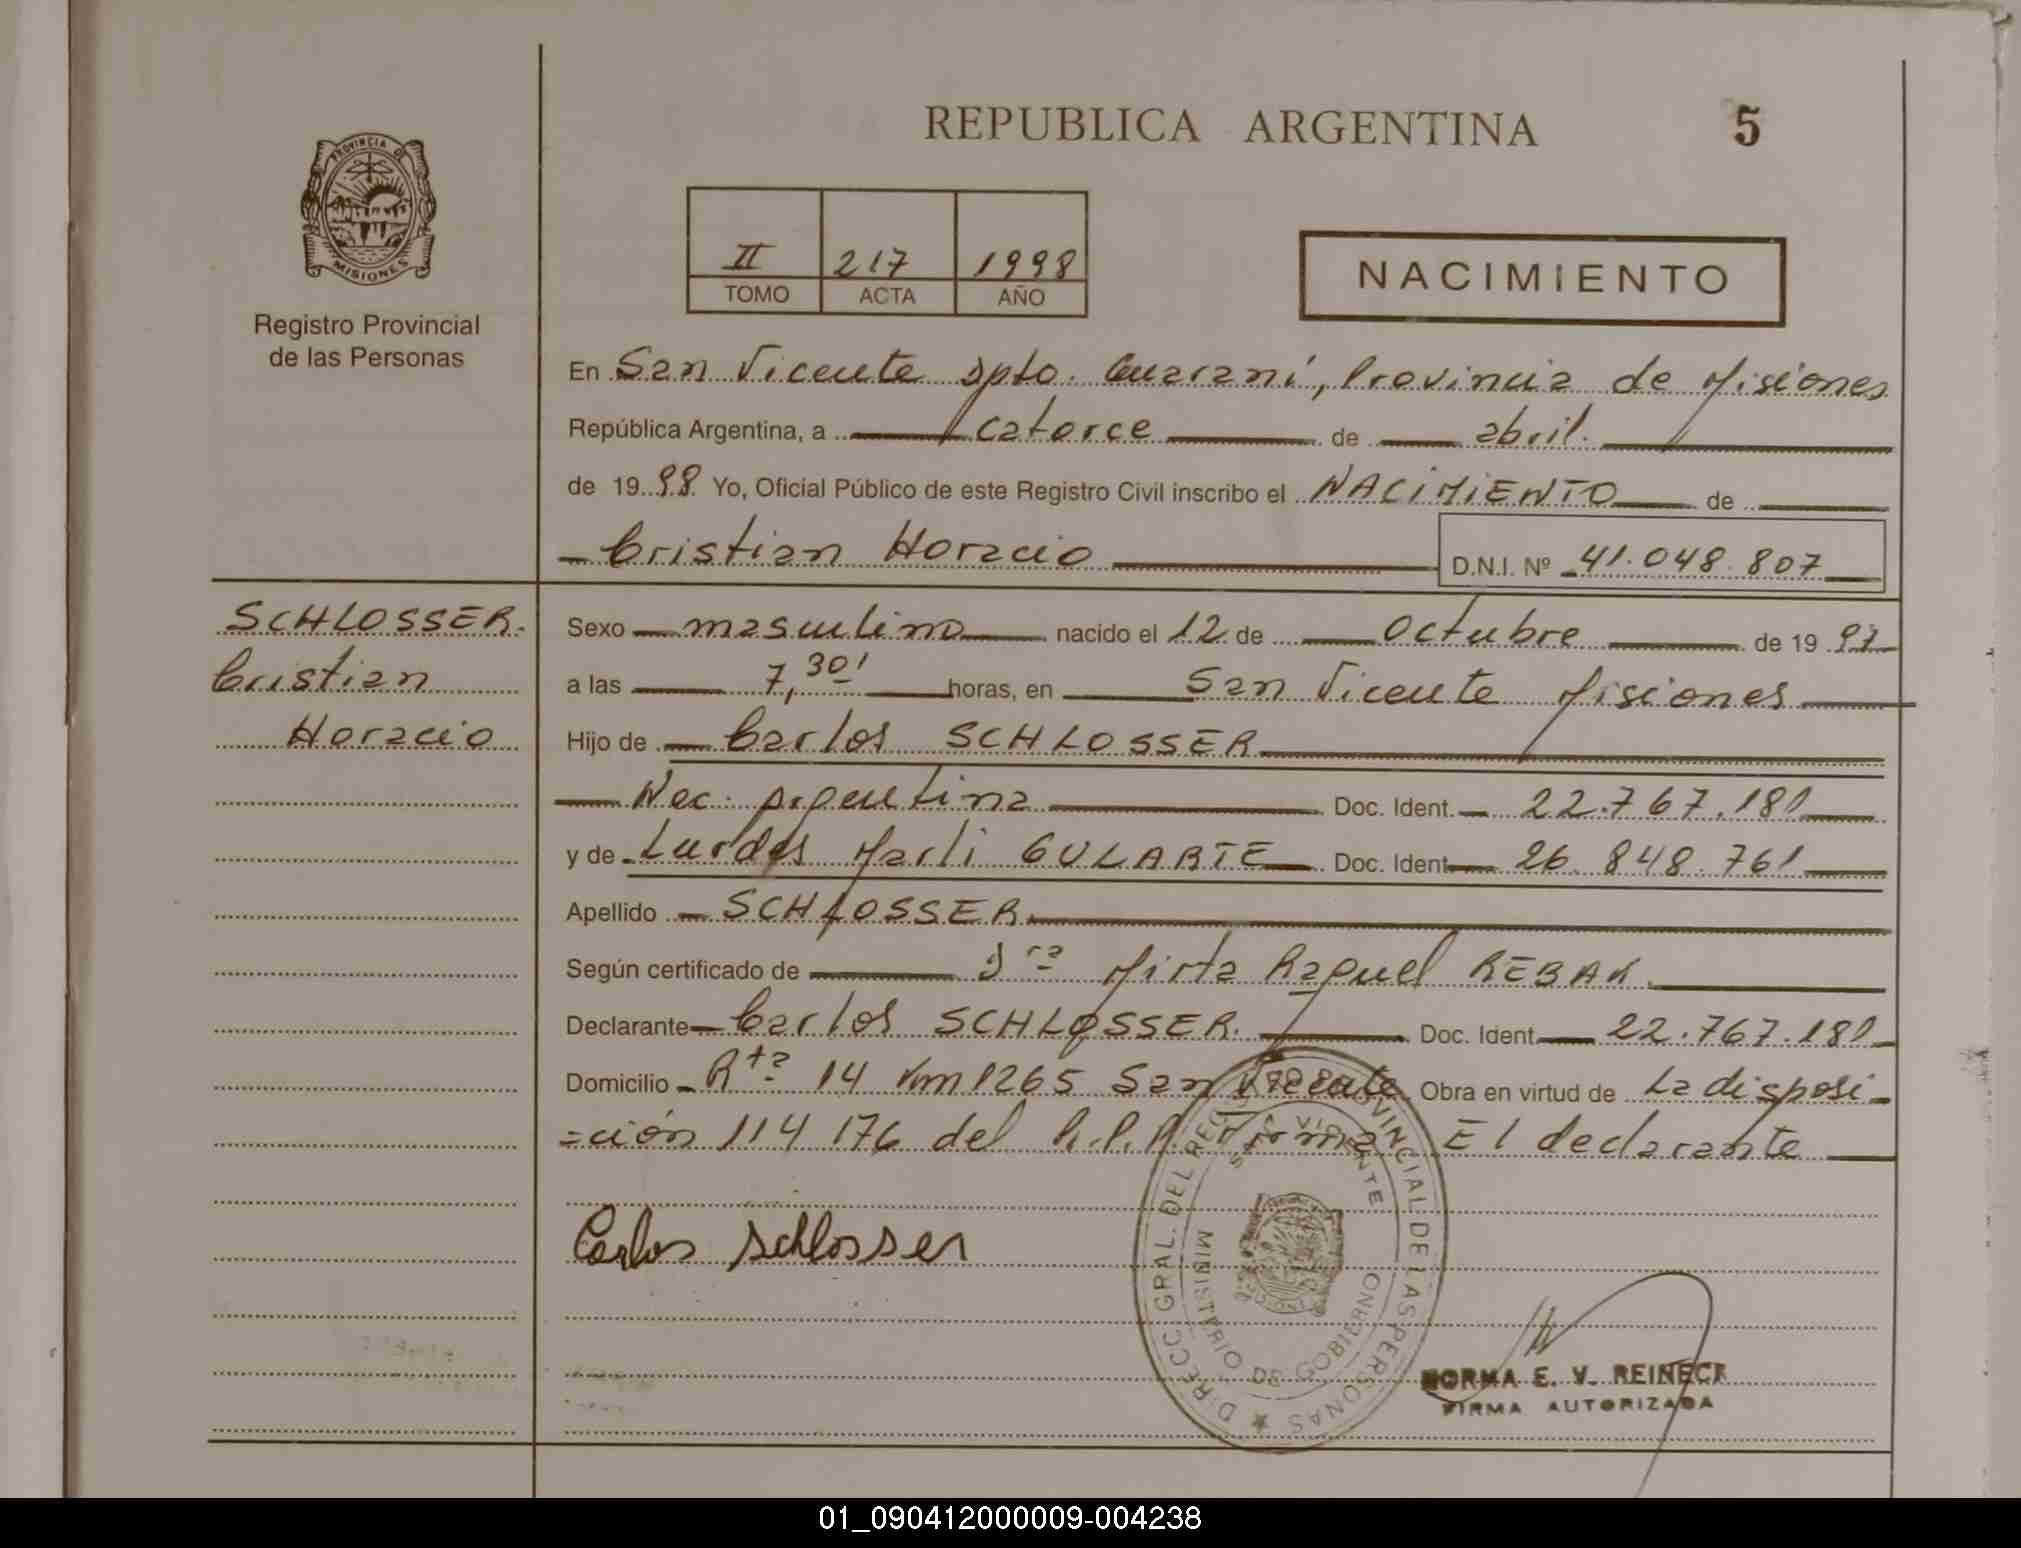 REPUBLICA ARGENTINA 5
PROVINCIA DE
MISIONES
Registro Provincial
de las Personas
II 217 1998
TOMO ACTA AÑO
NACIMIENTO
En San Vicente Dpto. Guaraní, Provincia de Misiones
República Argentina, a catorce de abril.
de 19 98 Yo, Oficial Público de este Registro Civil inscribo el NACIMIENTO de
Cristian Horacio D.N.I. Nº 41.048.807
SCHLOSSER.
Cristian
Horacio
Sexo masculino nacido el 12 de Octubre de 19 97
a las 7,30' horas, en San Vicente Misiones
Hijo de Carlos SCHLOSSER
Nac. Argentina Doc. Ident. 22.767.181
y de Lurdes Marli GULARTE Doc. Ident 26.848.761
Apellido SCHLOSSER
Según certificado de Dra Mirta Raquel REBAK
Declarante Carlos SCHLOSSER. Doc. Ident 22.767.181
Domicilio Rta 14 Km 1265 San Vicente Obra en virtud de La disposi
=ción 114 176 del R.P.P. Firma El declarante
Carlos Schlosser
DIRECC. GRAL. DEL REG. PROVINCIAL DE LAS PERSONAS
SAN VICENTE
MINISTERIO DE GOBIERNO
NORMA E. V. REINECK
FIRMA AUTORIZADA
01_090412000009-004238